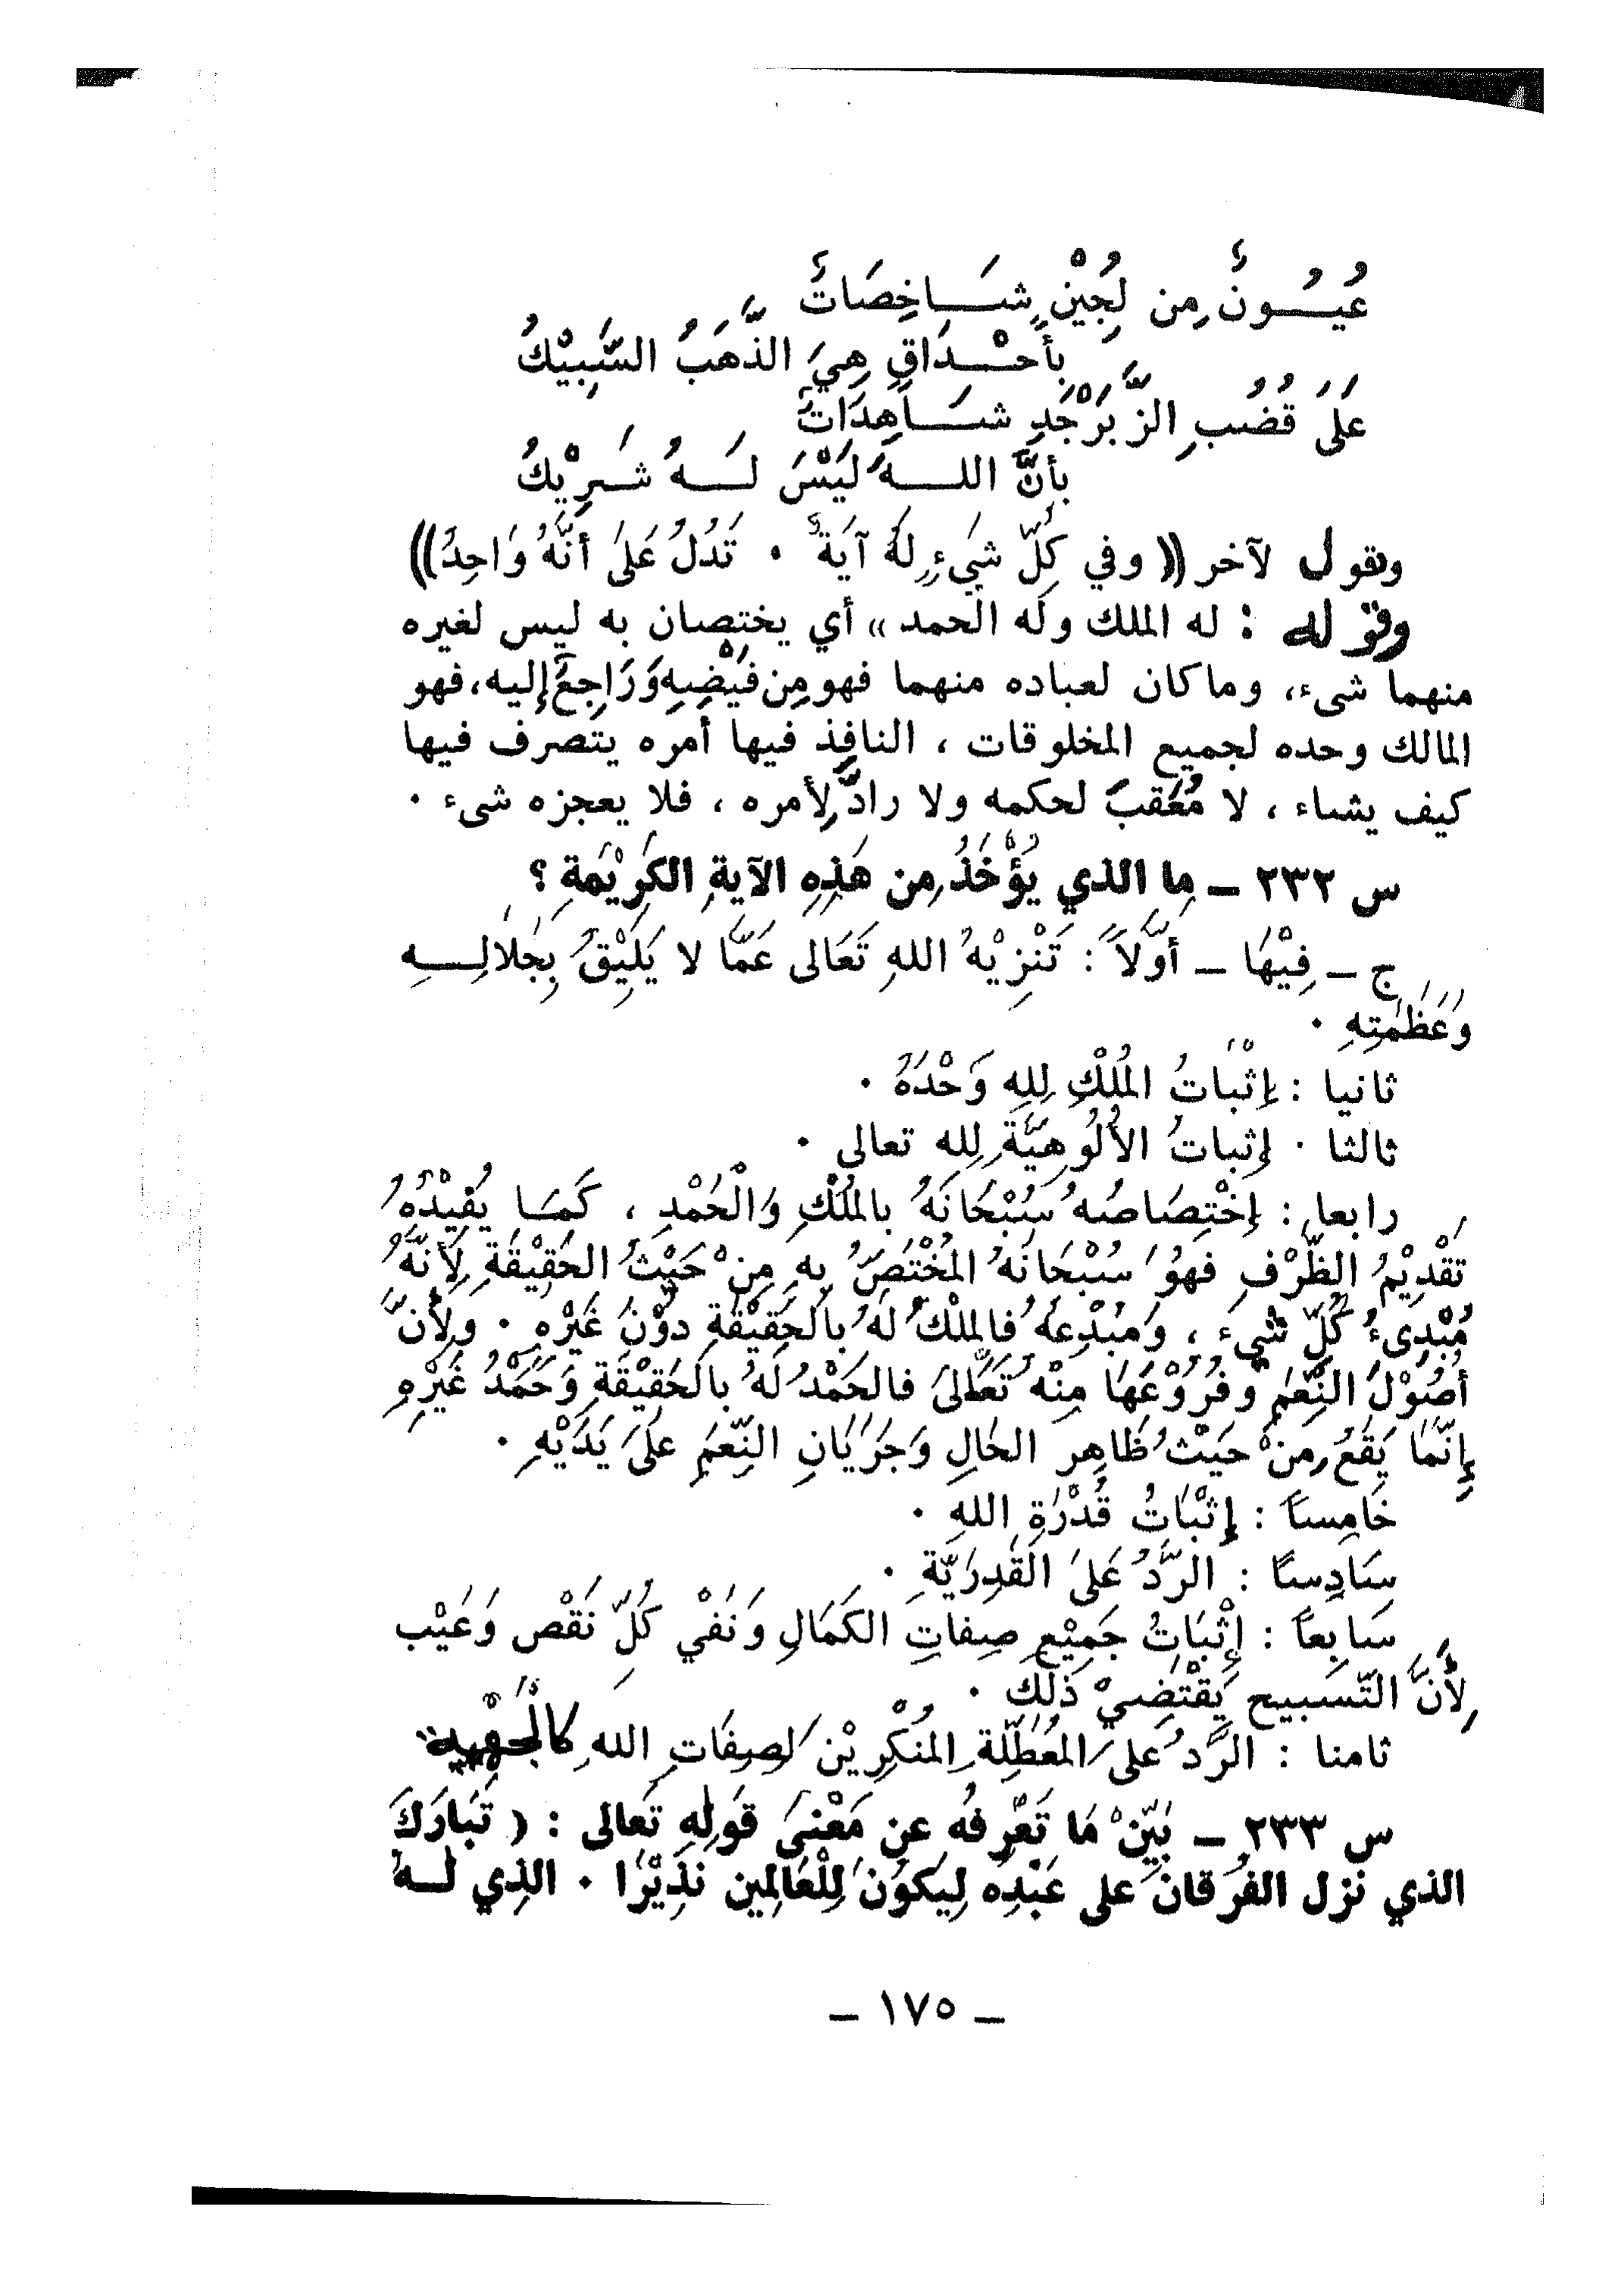 عُيُـــونٌ مِن لُجَيْنٍ شَـــاخِصَاتٌ
بِأَحْـــدَاقٍ هِيَ الذَّهَبُ السَّبِيْكُ
عَلَى قُضُبِ الزَّبَرْجَدِ شَـــاهِدَاتٌ
بِأَنَّ اللـــهَ لَيْسَ لَـــهُ شَـرِيْكُ
وقول لآخر (( وفي كُلِّ شَيْءٍ لَهُ آيَةٌ ٠ تَدُلُّ عَلَى أنَّهُ وَاحِدُ ))
وقوله : له الملك وله الحمد » أي يختصان به ليس لغيره
منهما شىء، وما كان لعباده منهما فهو مِن فَيْضِهِ وَرَاجِعٌ إليه، فهو
المالك وحده لجميع المخلوقات ، النافِذ فيها أمره يتصرف فيها
كيف يشاء ، لا مُعَقبَ لحكمه ولا رادَّ لِأمره ، فلا يعجزه شىء ٠
س ٢٣٢ ـ ما الذي يُؤْخَذُ مِن هَذِهِ الآيةِ الكَرِيْمَةِ ؟
ج ـ فِيْهَا ـ أوَّلاً : تَنْزِيْهُ اللهِ تَعَالى عَمَّا لا يَلِيْقُ بِجَلالِـــهِ
وَعَظَمَتِهِ ٠
ثانيا : إثْبَاتُ المُلْكِ لِلهِ وَحْدَهُ ٠
ثالثا ٠ إثباتُ الأُلُوهِيَّةِ لِلهِ تعالى ٠
رابعا : إخْتِصَاصُهُ سُبْحَانَهُ بالمُلْكِ وَالْحَمْدِ ، كَمَـا يُفِيْدُهُ
تَقْدِيْمُ الظَّرْفِ فهوُ سُبْحَانَهُ المُخْتَصُّ بِهِ مِنْ حَيْثُ الحَقِيْقَةِ لِأَنَّهُ
مُبْدِىءُ كُلِّ شَىْءٍ ، وَمُبْدِعُهُ فالملْكُ لَهُ بالحَقِيْقَةِ دُوْنَ غَيْرْهِ ٠ ولِأَنَّ
أُصُوْلَ النِّعَمِ وَفُرُوْعَهَا مِنْهُ تَعَالَى فالحَمْدُ لَهُ بالحَقِيْقَةِ وَحَمْدُ غَيْرِهِ
إنَّمَا يَقَعُ مِنْ حَيْثُ ظَاهِرِ الحَالِ وَجَرَيَانِ النِّعَمِ عَلَى يَدَيْهِ ٠
خَامِساً : إثْبَاتُ قُدْرَةِ اللهِ ٠
سَادِسًا : الرَّدُّ عَلَى القَدَرِيَّةِ ٠
سَابِعاً : إثْبَاتُ جَمِيْعِ صِفَاتِ الكَمَالِ وَنَفْي كُلِّ نَقْصٍ وَعَيْبٍ
لِأَنَّ التَّسبيحِ يَقْتَضِيْ ذَلِكِ ٠
ثامنا : الرَّدُ عَلَى المُعَطِّلَةِ المُنْكِرِيْنَ لِصِفَاتِ اللهِ كَالْجَهْمِيةِ
س ٢٣٣ ـ بَيِّنْ مَا تَعْرِفُه عن مَعْنَى قَوْلِهِ تَعالى : ( تَبَارَكَ
الذي نَزل الفُرْقانَ على عَبْدِه لِيَكُوْنَ لِلْعَالمِين نَذِيْرًا ٠ الذِي لَـهُ
ـ ١٧٥ ـ